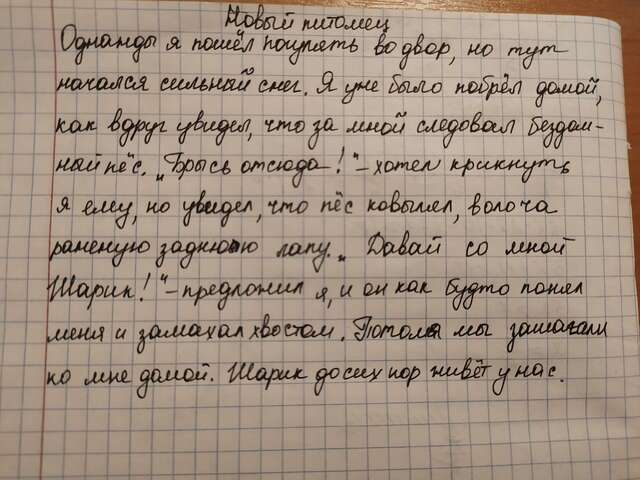 Новый питомец
Однажды я пошёл погулять во двор, но тут
начался сильный снег. Я уже было побрёл домой,
как вдруг увидел, что за мной следовал бездом-
ный пёс. „Брысь отсюда!" - хотел крикнуть
я ему, но увидел, что пёс ковылял, волоча
раненую заднюю лапу. „Давай со мной
Шарик!" - предложил я, и он как будто понял
меня и замахал хвостом. Потом мы зашагали
ко мне домой. Шарик до сих пор живёт у нас.